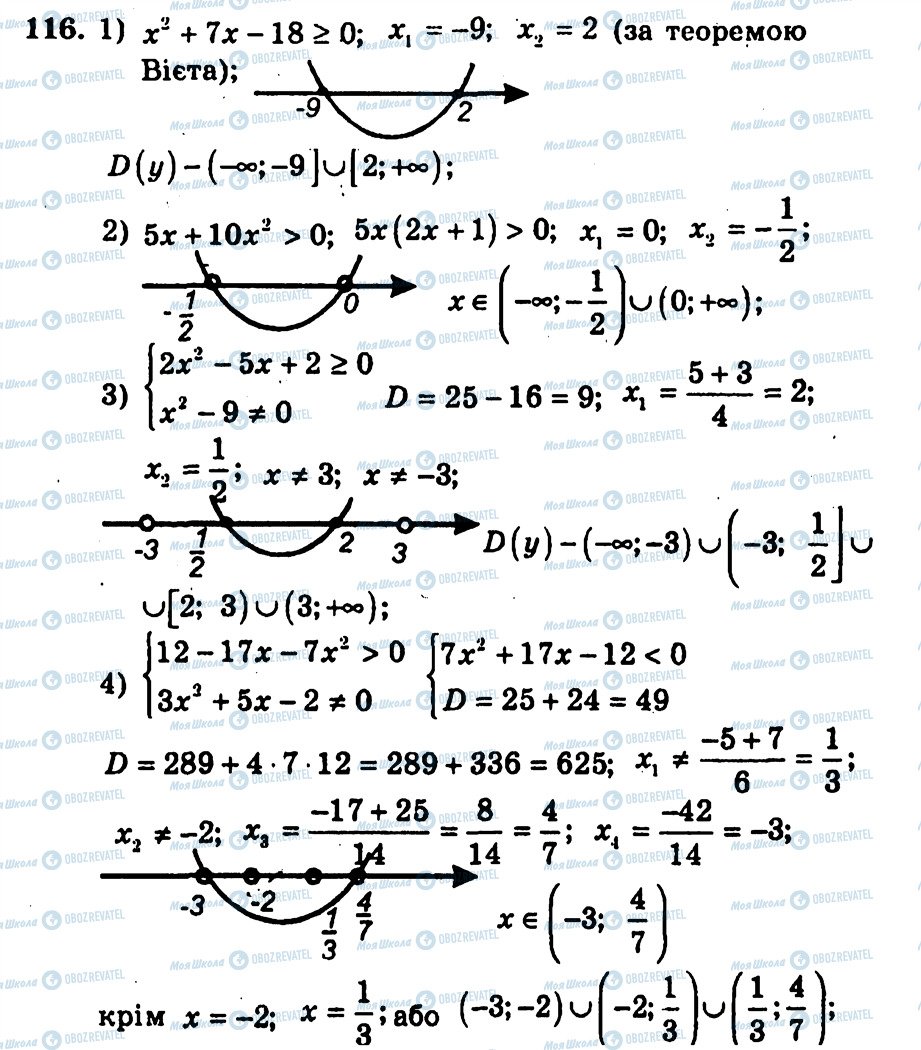 116. 1) x² + 7x − 18 ≥ 0; x₁ = −9; x₂ = 2 (за теоремою
Вієта);
-9 2
D(y) − (−∞; −9] ∪ [2; +∞);
2) 5x + 10x² > 0; 5x(2x + 1) > 0; x₁ = 0; x₂ = −1/2;
-1/2 0 x ∈ (−∞; −1/2) ∪ (0; +∞);
3) {2x² − 5x + 2 ≥ 0
x² − 9 ≠ 0 D = 25 − 16 = 9; x₁ = (5 + 3)/4 = 2;
x₂ = 1/2; x ≠ 3; x ≠ −3;
-3 1/2 2 3 D(y) − (−∞; −3) ∪ (−3; 1/2] ∪
∪ [2; 3) ∪ (3; +∞);
4) {12 − 17x − 7x² > 0 {7x² + 17x − 12 < 0
3x³ + 5x − 2 ≠ 0 D = 25 + 24 = 49
D = 289 + 4 · 7 · 12 = 289 + 336 = 625; x₁ ≠ (−5 + 7)/6 = 1/3;
x₂ ≠ −2; x₃ = (−17 + 25)/14 = 8/14 = 4/7; x₄ = −42/14 = −3;
-3 -2 1/3 4/7 x ∈ (−3; 4/7)
крім x = −2; x = 1/3; або (−3; −2) ∪ (−2; 1/3) ∪ (1/3; 4/7);
Моя Школа OBOZREVATEL